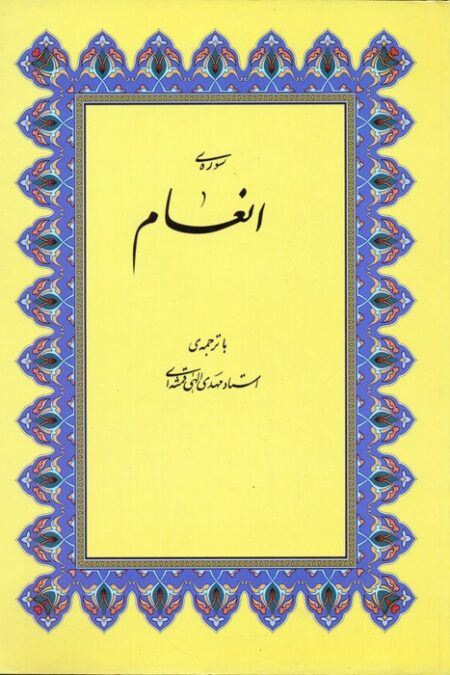 سوره‌ی
انعام
با ترجمه‌ی
استاد مهدی الهی قمشه‌ای